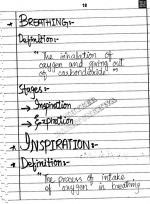 18
→ BREATHING:-
Definition:-
"The inhalation of
oxygen and giving out
of carbondioxide"
Stages:-
→ Inspiration
→ Expiration
→ INSPIRATION:-
→ Definition:-
"The process of intake
of oxygen in breathing